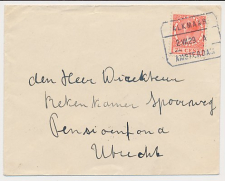 ALKMAAR
A
AMSTERDAM
den Heer Directeur
Rekenkamer Spoorweg
Pensioenfonds
Utrecht